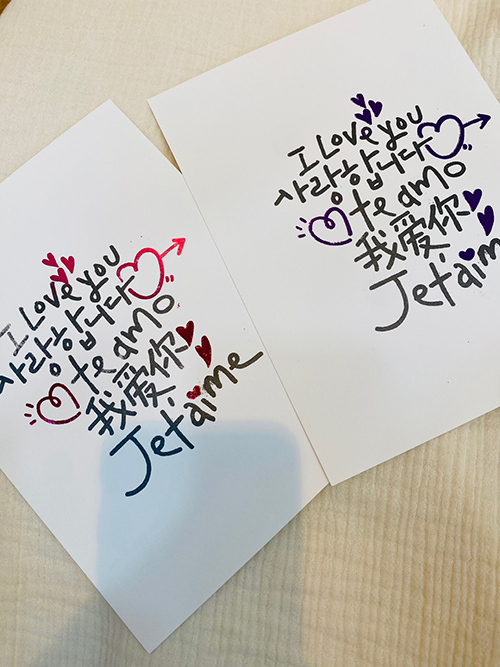 I Love you
사랑합니다
te amo
我爱你
Jet'aime
I Love you
사랑합니다
te amo
我爱你
Jet'aime